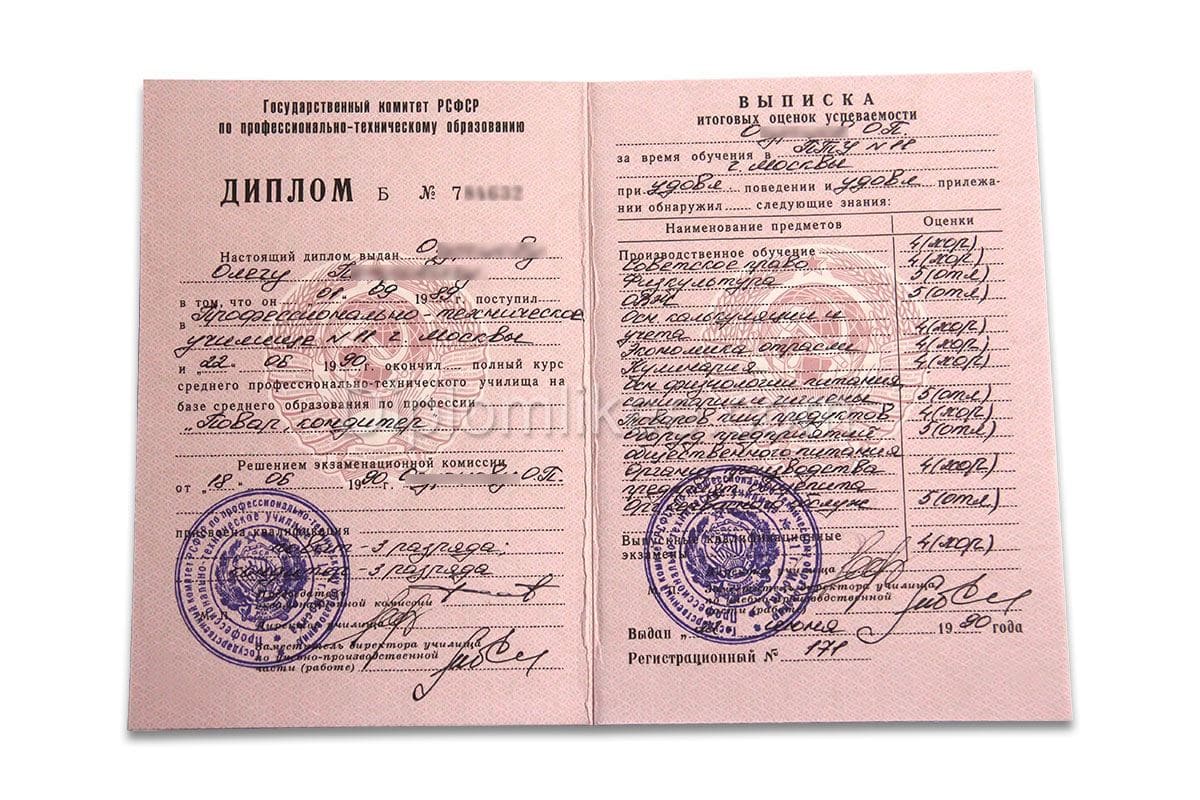 Государственный комитет РСФСР
по профессионально-техническому образованию
ДИПЛОМ Б № 7
Настоящий диплом выдан О у
Олегу П
в том, что он 01 " 09 1989 г. поступил
в Профессионально техническое
училище N 11 г. Москвы
и „ 22 " 06 1990 г. окончил полный курс
среднего профессионально-технического училища на
базе среднего образования по профессии
„Повар, кондитер"
Решением экзаменационной комиссии
от „ 18 " 06 1990 О О.П.
присвоена квалификация
повар - 3 разряда;
кондитер - 3 разряда
Председатель
экзаменационной комиссии
Директор училища
Заместитель директора училища
по учебно-производственной
части (работе)
ВЫПИСКА
итоговых оценок успеваемости
О О.П.
за время обучения в ПТУ N 11
г. Москвы
при удовл. поведении и удовл прилежа-
нии обнаружил следующие знания:
Наименование предметов Оценки
Производственное обучение 4 (хор)
Советское право 4 (хор)
Физкультура 5 (отл)
5 (отл)
осн калькуляции и
учета 4 (хор)
Экономика отрасли 4 (хор)
Кулинария 4 (хор)
осн физиологии питания
санитарии и гигиены 5 (отл)
Товаров пищ продуктов 4 (хор)
оборуд предприятий 5 (отл)
общественного питания
Органи производства 4 (хор)
5 (отл)
Выпускные квалификационные
экзамены 4 (хор)
училища
Заместитель директора училища
по учебно-производственной
части (работе)
Выдан „ 22 " июня 1990 года
Регистрационный № 171